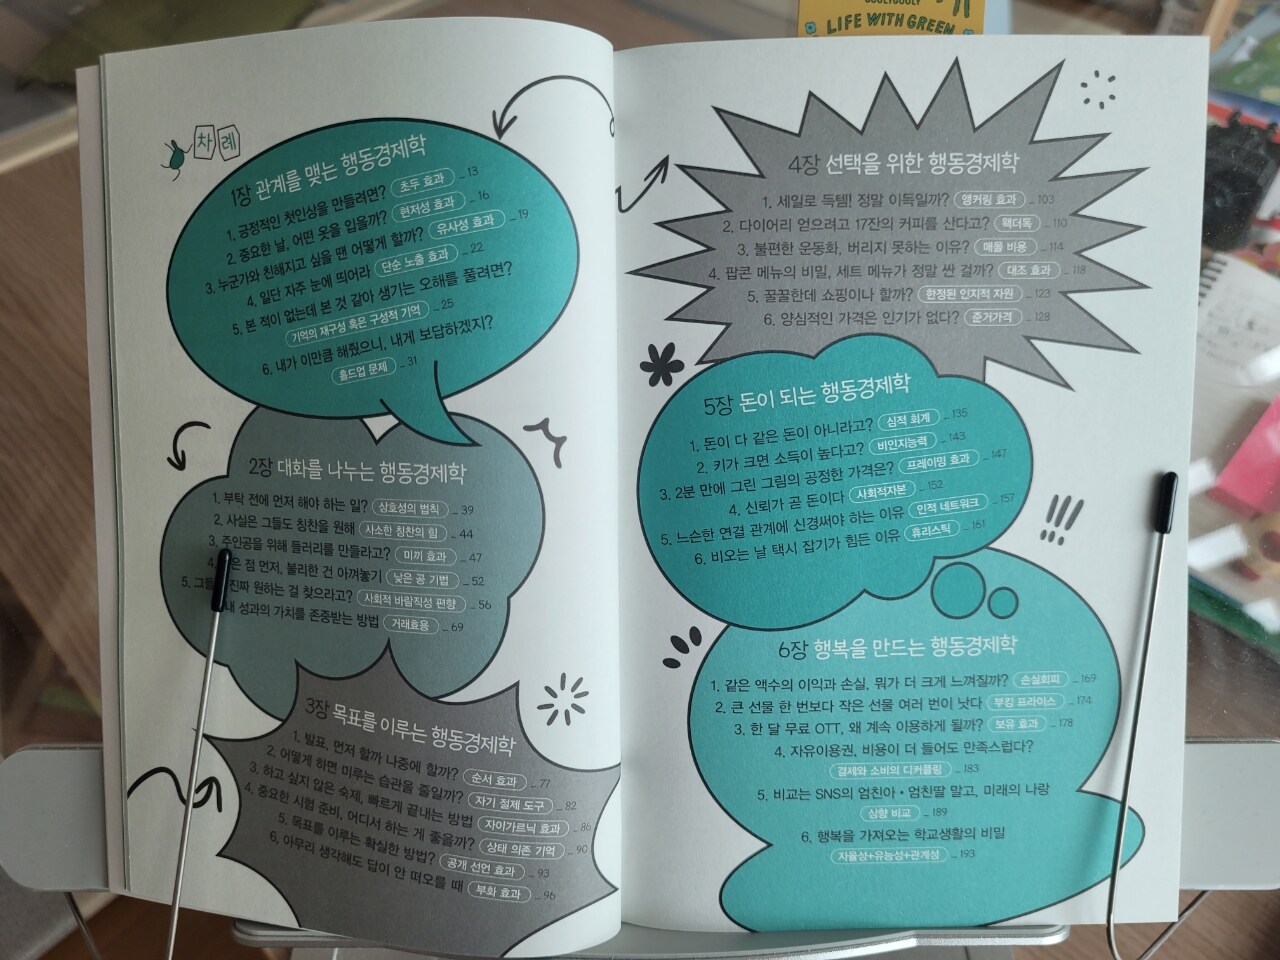 LIFE WITH GREEN
차례
1장 관계를 맺는 행동경제학
1. 긍정적인 첫인상을 만들려면? 초두 효과 _ 13
2. 중요한 날, 어떤 옷을 입을까? 현저성 효과 _ 16
3. 누군가와 친해지고 싶을 땐 어떻게 할까? 유사성 효과 _ 19
4. 일단 자주 눈에 띄어라 단순 노출 효과 _ 22
5. 본 적이 없는데 본 것 같아 생기는 오해를 풀려면?
기억의 재구성 혹은 구성적 기억 _ 25
6. 내가 이만큼 해줬으니, 내게 보답하겠지?
홀드업 문제 _ 31
2장 대화를 나누는 행동경제학
1. 부탁 전에 먼저 해야 하는 일? 상호성의 법칙 _ 39
2. 사실은 그들도 칭찬을 원해 사소한 칭찬의 힘 _ 44
3. 주인공을 위해 들러리를 만들라고? 미끼 효과 _ 47
4. 은 점 먼저, 불리한 건 아껴놓기 낮은 공 기법 _ 52
5. 그들 진짜 원하는 걸 찾으라고? 사회적 바람직성 편향 _ 56
내 성과의 가치를 존중받는 방법 거래효용 _ 69
3장 목표를 이루는 행동경제학
1. 발표, 먼저 할까 나중에 할까? 순서 효과 _ 77
2. 어떻게 하면 미루는 습관을 줄일까? 자기 절제 도구 _ 82
3. 하고 싶지 않은 숙제, 빠르게 끝내는 방법 자이가르닉 효과 _ 86
4. 중요한 시험 준비, 어디서 하는 게 좋을까? 상태 의존 기억 _ 90
5. 목표를 이루는 확실한 방법? 공개 선언 효과 _ 93
6. 아무리 생각해도 답이 안 떠오를 때 부화 효과 _ 96
4장 선택을 위한 행동경제학
1. 세일로 득템! 정말 이득일까? 앵커링 효과 _ 103
2. 다이어리 얻으려고 17잔의 커피를 산다고? 왝더독 _ 110
3. 불편한 운동화, 버리지 못하는 이유? 매몰 비용 _ 114
4. 팝콘 메뉴의 비밀, 세트 메뉴가 정말 싼 걸까? 대조 효과 _ 118
5. 꿀꿀한데 쇼핑이나 할까? 한정된 인지적 자원 _ 123
6. 양심적인 가격은 인기가 없다? 준거가격 _ 128
5장 돈이 되는 행동경제학
1. 돈이 다 같은 돈이 아니라고? 심적 회계 _ 135
2. 키가 크면 소득이 높다고? 비인지능력 _ 143
3. 2분 만에 그린 그림의 공정한 가격은? 프레이밍 효과 _ 147
4. 신뢰가 곧 돈이다 사회적자본 _ 152
5. 느슨한 연결 관계에 신경써야 하는 이유 인적 네트워크 _ 157
6. 비오는 날 택시 잡기가 힘든 이유 휴리스틱 _ 161
6장 행복을 만드는 행동경제학
1. 같은 액수의 이익과 손실, 뭐가 더 크게 느껴질까? 손실회피 _ 169
2. 큰 선물 한 번보다 작은 선물 여러 번이 낫다 부킹 프라이스 _ 174
3. 한 달 무료 OTT, 왜 계속 이용하게 될까? 보유 효과 _ 178
4. 자유이용권, 비용이 더 들어도 만족스럽다?
결제와 소비의 디커플링 _ 183
5. 비교는 SNS의 엄친아・엄친딸 말고, 미래의 나랑
상향 비교 _ 189
6. 행복을 가져오는 학교생활의 비밀
자율성+유능성+관계성 _ 193